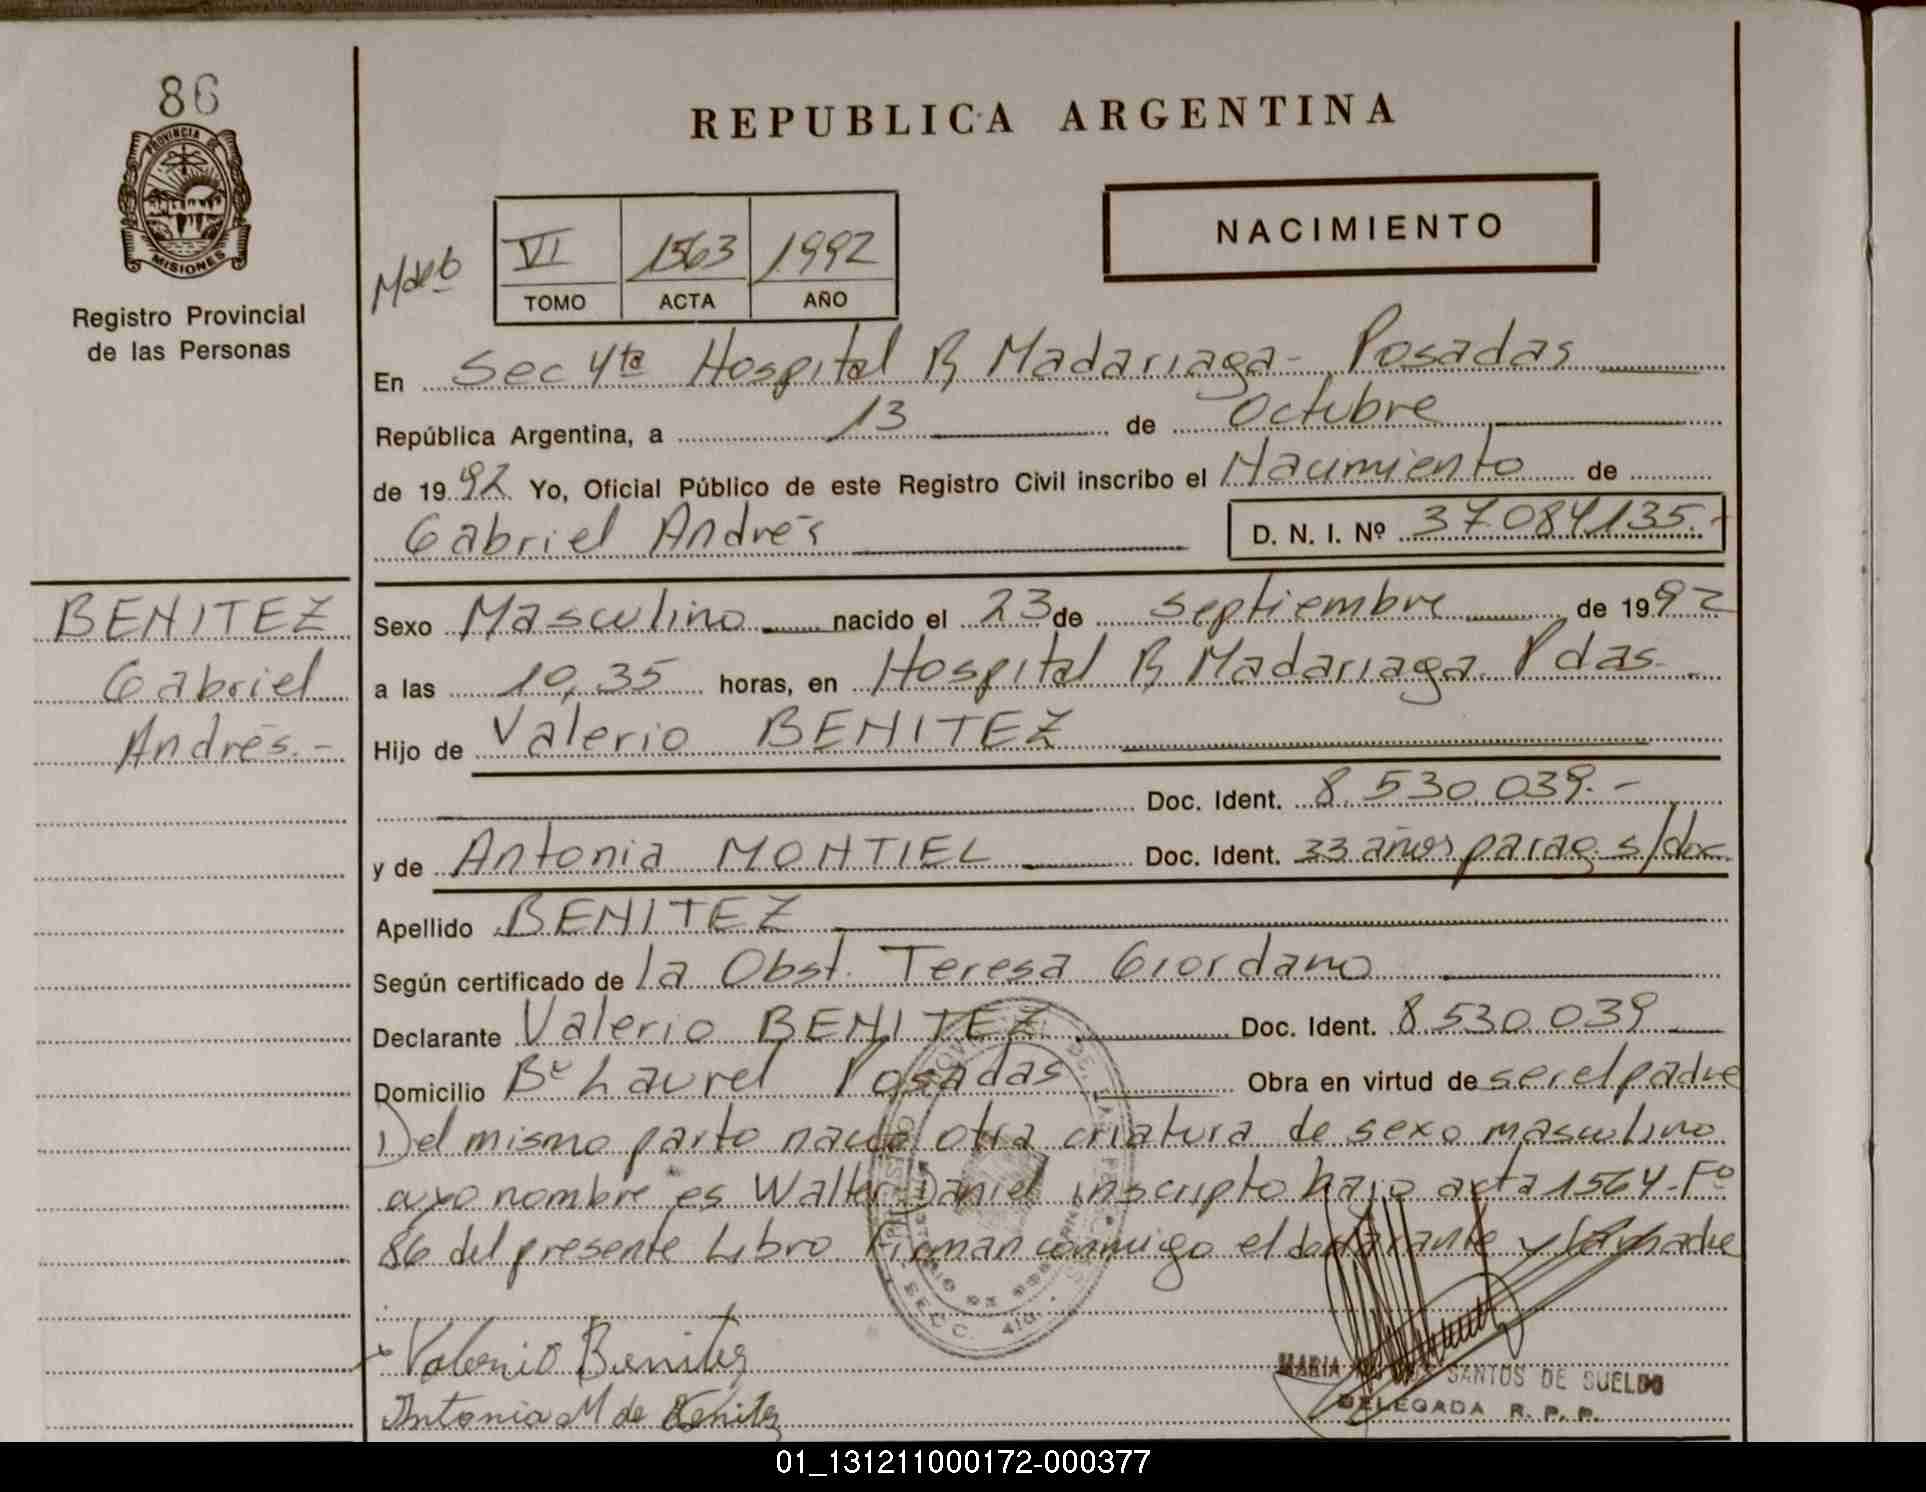 86
PROVINCIA DE
MISIONES
Registro Provincial
de las Personas
REPUBLICA ARGENTINA
NACIMIENTO
VI 1563 1992
TOMO ACTA AÑO
En Sec 4ta Hospital R Madariaga - Posadas
República Argentina, a 13 de Octubre
de 1992 Yo, Oficial Público de este Registro Civil inscribo el Nacimiento de
Gabriel Andrés D. N. I. Nº 37.084.135.-
BENITEZ
Gabriel
Andrés.-
Sexo Masculino nacido el 23 de septiembre de 1992
a las 10,35 horas, en Hospital R Madariaga Pdas.
Hijo de Valerio BENITEZ
Doc. Ident. 8.530.039.-
y de Antonia MONTIEL Doc. Ident. 33 años parag. s/doc.
Apellido BENITEZ
Según certificado de la Obst. Teresa Giordano
Declarante Valerio BENITEZ Doc. Ident. 8.530.039
Domicilio Bº Laurel Posadas Obra en virtud de ser el padre
Del mismo parto nació otra criatura de sexo masculino
cuyo nombre es Walter Daniel inscripto bajo acta 1564-Fº
86 del presente Libro Firman conmigo el declarante y la madre
Valerio Benitez
Antonia M de Benitez
MARIA SANTOS DE SUELDO
DELEGADA R. P. P.
SECC. 4ta.
01_131211000172-000377